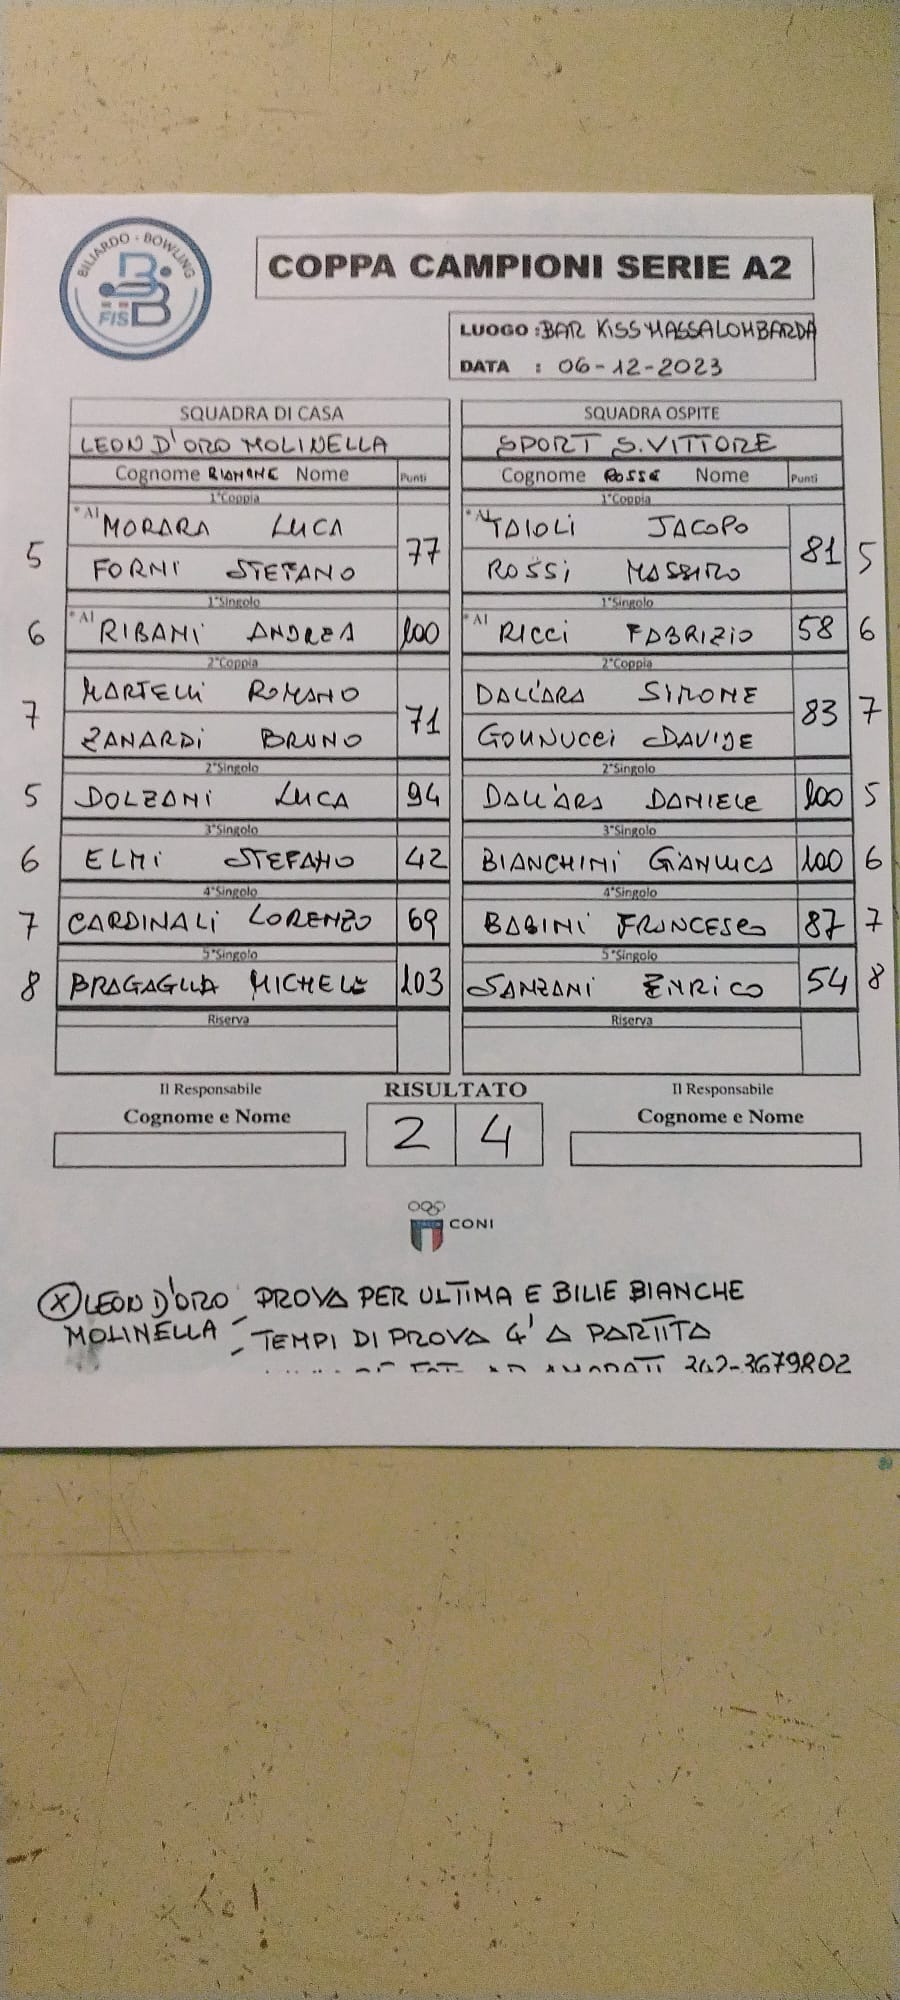 BILIARDO - BOWLING
FISBB
COPPA CAMPIONI SERIE A2
LUOGO : BAR KISS MASSALOMBARDA
DATA : 06-12-2023
SQUADRA DI CASA SQUADRA OSPITE
LEON D'ORO MOLINELLA SPORT S.VITTORE
Cognome BIANCHE Nome Punti Cognome ROSSE Nome Punti
1°Coppia 1°Coppia
5 *A1 MORARA LUCA 77 *A1 TAIOLI JACOPO 81 5
FORNI STEFANO ROSSI MASSIMO
1°Singolo 1°Singolo
6 *A1 RIBANI ANDREA 100 *A1 RICCI FABRIZIO 58 6
2°Coppia 2°Coppia
7 MARTELLI ROMANO 71 DALL'ARA SIMONE 83 7
ZANARDI BRUNO DAVIDE
2°Singolo 2°Singolo
5 DOLZANI LUCA 94 DALL'ARA DANIELE 100 5
3°Singolo 3°Singolo
6 ELMI STEFANO 42 BIANCHINI GIANLUCA 100 6
4°Singolo 4°Singolo
7 CARDINALI LORENZO 69 BABINI FRANCESCO 87 7
5°Singolo 5°Singolo
8 BRAGAGLIA MICHELE 103 SANZANI ENRICO 54 8
Riserva Riserva
Il Responsabile RISULTATO Il Responsabile
Cognome e Nome Cognome e Nome
2 4
CONI
(X) LEON D'ORO - PROVA PER ULTIMA E BILIE BIANCHE
MOLINELLA - TEMPI DI PROVA 4' A PARTITA
342-3679802